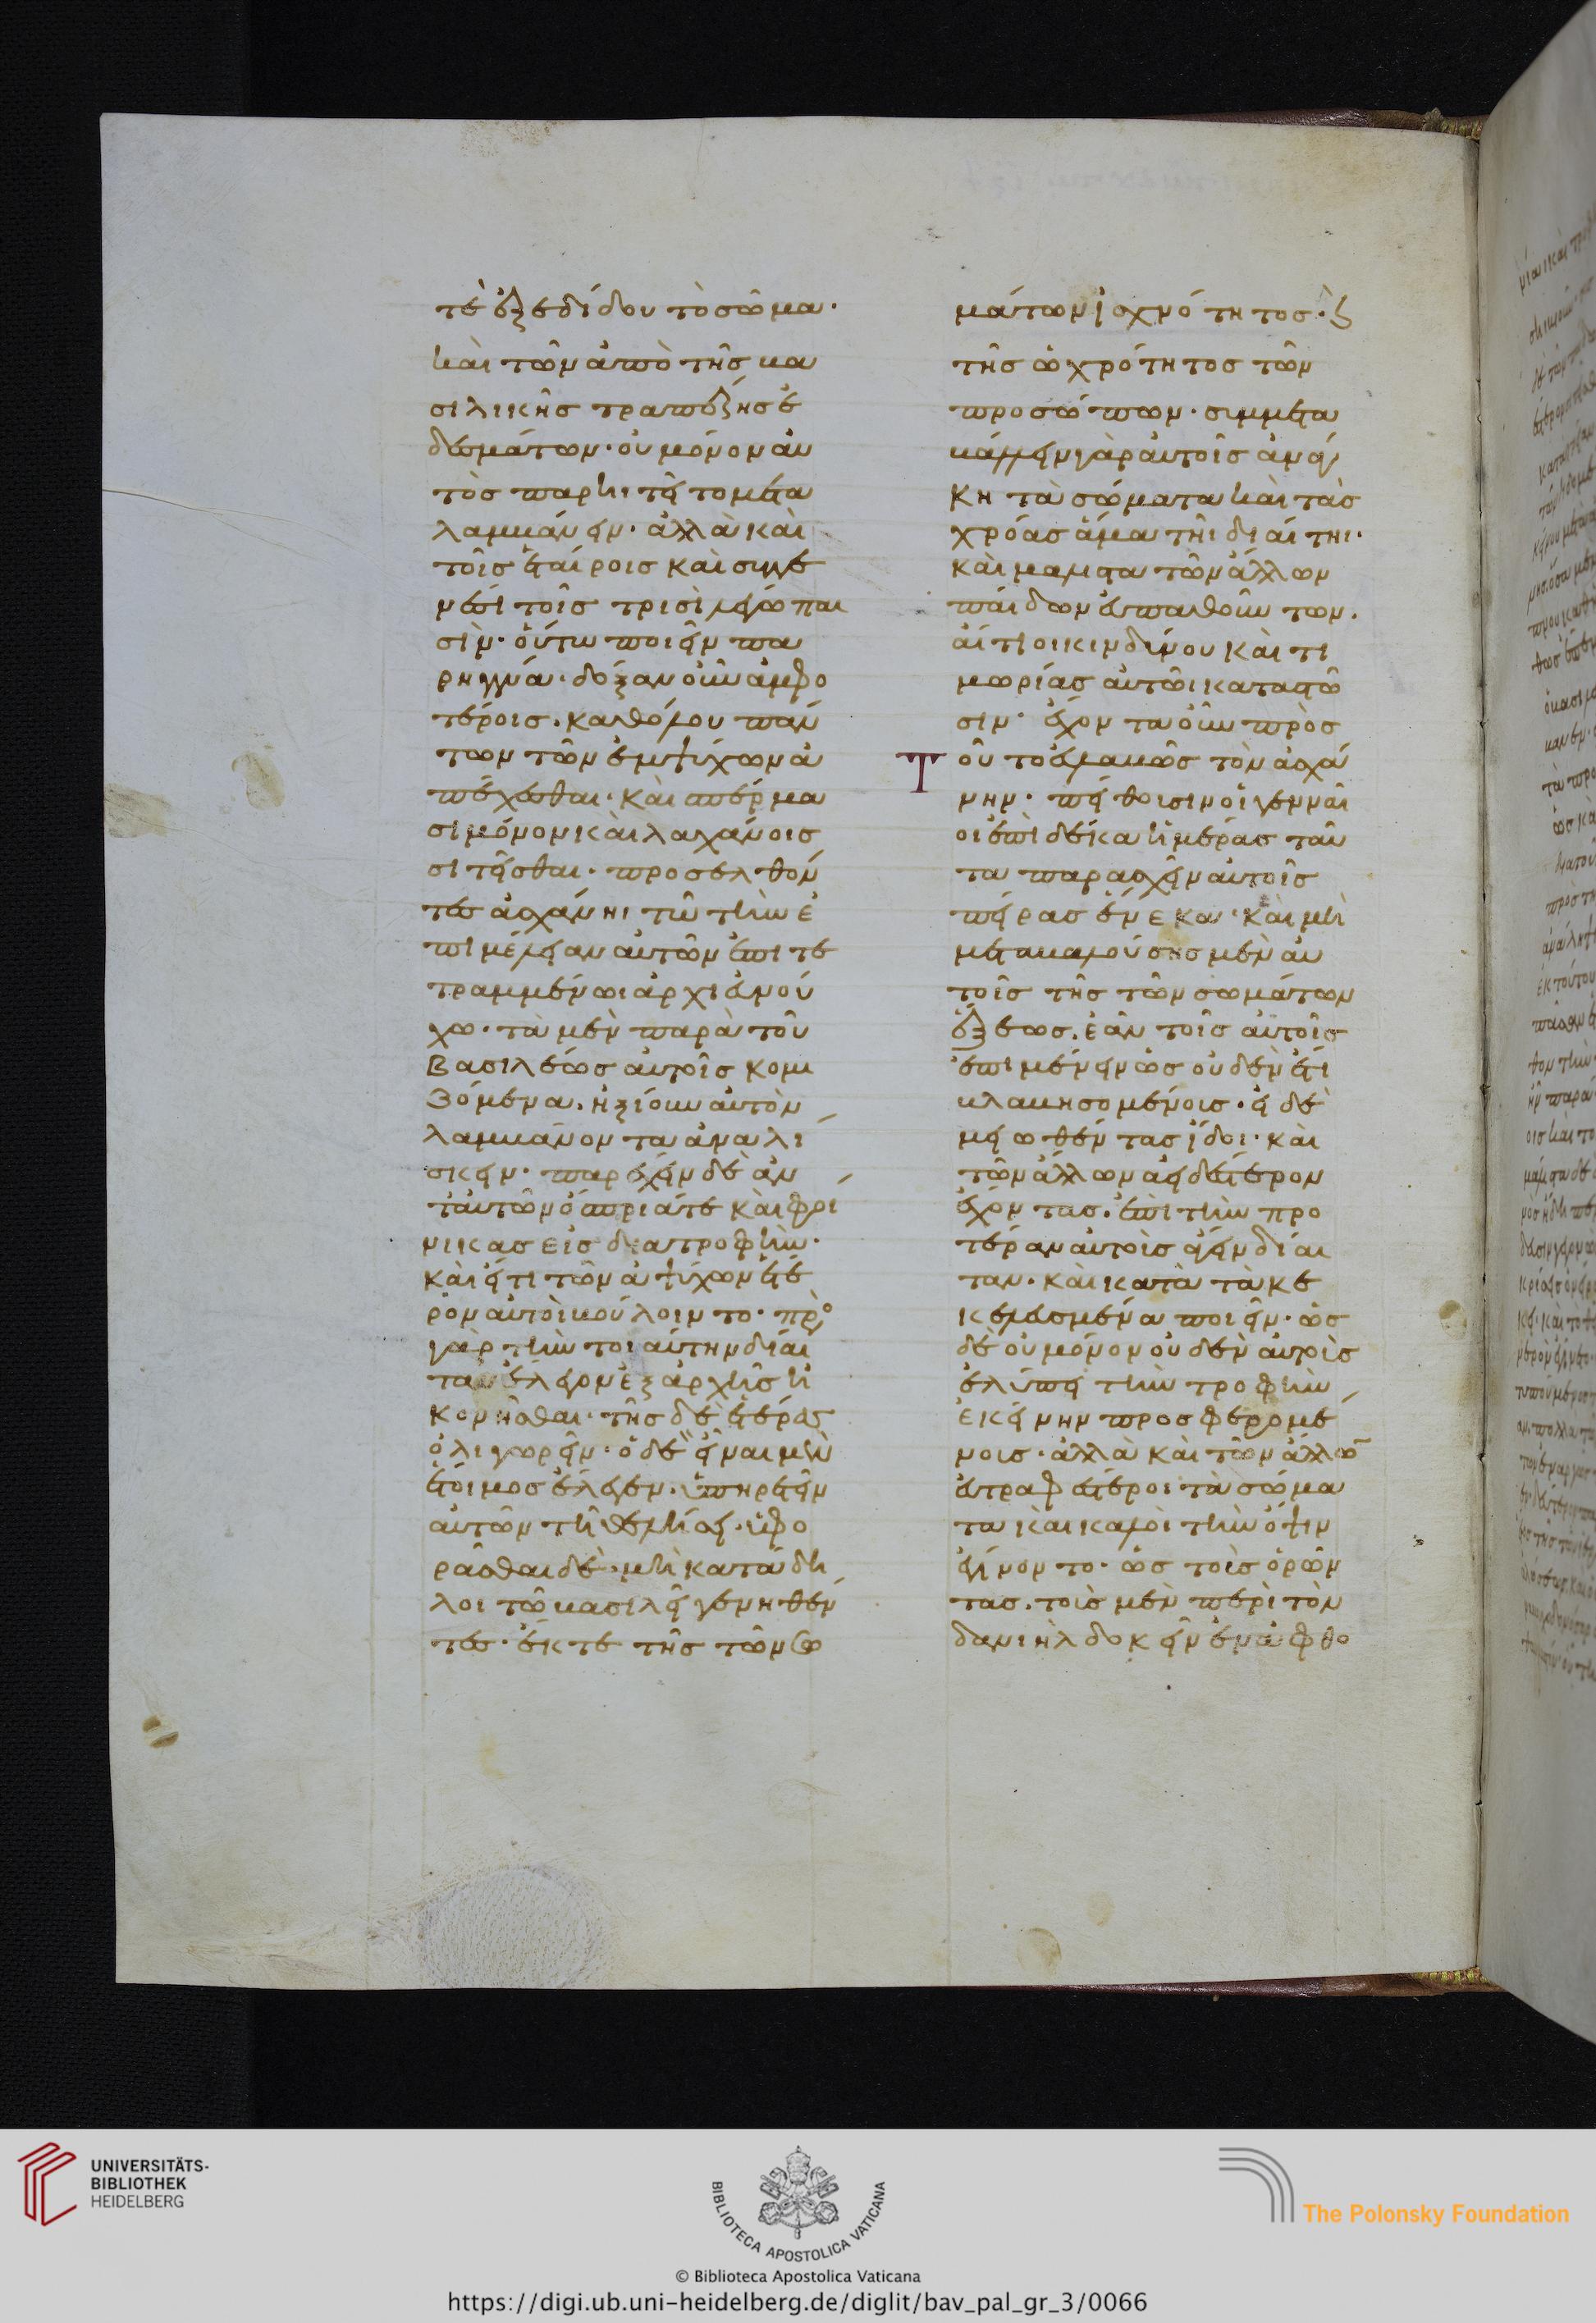 τὲ ἐξεδίδου τὸ σῶμα·
καὶ τῶν ἀπὸ τῆς βα
σιλικῆς τραπέζης ἐ
δεσμάτων· οὐ μόνον αὐ
τὸς παρηιτεῖτο μετα
λαμβάνειν· ἀλλὰ καὶ
τοῖς ἑταίροις καὶ συγγε
νέσι τοῖς τρισὶ παι
σὶν· οὕτω ποιεῖν πα
ρηγγύα· δόξαν οὖν ἀμφο
τέροις· καθόλου πάν
των τῶν ἐμψύχων ἀ
πέχεσθαι· καὶ σπέρμα
σι μόνον καὶ λαχάνοις
σιτεῖσθαι· προσελθόν
τες ἀσχάνηι τῶ τὴν ἐ
πιμέλειαν αὐτῶν ἐπιτε
τραμμένωι ἀρχιευνού
χω· τὰ μὲν παρὰ τοῦ
βασιλέως αὐτοῖς κομι
ζόμενα· ἠξίουν αὐτὸν
λαμβάνοντα ἀναλί
σκειν· παρέχειν δὲ ἀν
τ' αὐτῶν ὄσπριά τε καὶ φοί
νικας εἰς διατροφὴν·
καὶ εἴ τι τῶν ἀψύχων ἕτε
ρον αὐτοὶ βούλοιντο· πρὸς
γὰρ τὴν τοιαύτην δίαι
ταν ἔλεγον ἐξ ἀρχῆς ἠ
κονῆσθαι· τῆς δὲ ἑτέρας
ὀλιγωρεῖν· ὁ δὲ εἶναι μὲν
ἕτοιμος ἔλεγεν· ὑπηρετεῖν
αὐτῶν τῆ θελήσει· ὑφο
ρᾶσθαι δὲ· μὴ κατάδη
λοι τῶ βασιλεῖ γενηθέν
τες· ἔκ τε τῆς τῶν σω
μάτων ἰσχνότητος· καὶ
τῆς ὠχρότητος τῶν
προσώπων· συμμετα
βάλλειν γὰρ αὐτοῖς ἀνάγ
κη τὰ σώματα καὶ τὰς
χρόας ἅμα τῆι διαίτηι·
καὶ μάλιστα τῶν ἄλλων
παίδων εὐπαθούντων·
αἴτιοι κινδύνου καὶ τι
μωρίας αὐτῶι καταστῶ
σιν· ἔχοντα οὖν πρὸς
τοῦτο εὐλαβῶς τὸν ἀσχά
νην· πείθουσιν οἱ γενναῖ
οι ἐπὶ δέκα ἡμέρας ταῦ
τα παρασχεῖν αὐτοῖς
πείρας ἕνεκα· καὶ μὴ
μεταβαλούσης μὲν αὐ
τοῖς τῆς τῶν σωμάτων
ἕξεως· ἐᾶν τοῖς αὐτοῖς
ἐπιμένειν ὡς οὐδὲν ἔτι
βλαβησομένοις· εἰ δὲ
μειωθέντας ἴδοι· καὶ
τῶν ἄλλων ἀηδέστερον
ἔχοντας· ἐπὶ τὴν προ
τέραν αὐτοὺς ἄγειν δίαι
ταν· καὶ κατὰ τὰ κε
κελευσμένα ποιεῖν· ὡς
δὲ οὐ μόνον οὐδὲν αὐτοὺς
ἐλύπει τὴν τροφὴν
ἐκείνην προσφερομέ
νοις· ἀλλὰ καὶ τῶν ἄλλων
εὐτραφέστεροι τὰ σώμα
τα καὶ καλοὶ τὴν ὄψιν
ἐγίνοντο· ὡς τοὺς ὁρῶν
τας· τοὺς μὲν περὶ τὸν
δανιὴλ δοκεῖν ἐν ἀφθο
UNIVERSITÄTS-
BIBLIOTHEK
HEIDELBERG
BIBLIOTECA APOSTOLICA VATICANA
© Biblioteca Apostolica Vaticana
The Polonsky Foundation
https://digi.ub.uni-heidelberg.de/diglit/bav_pal_gr_3/0066